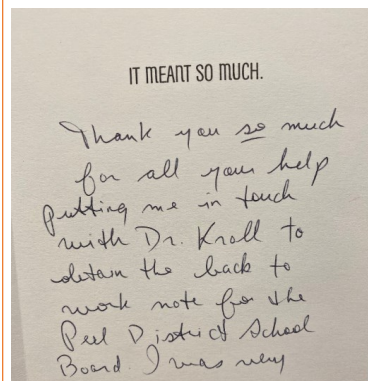 IT MEANT SO MUCH.
Thank you so much
for all your help
putting me in touch
with Dr. Kroll to
obtain the back to
work note for the
Peel District School
Board. I was very